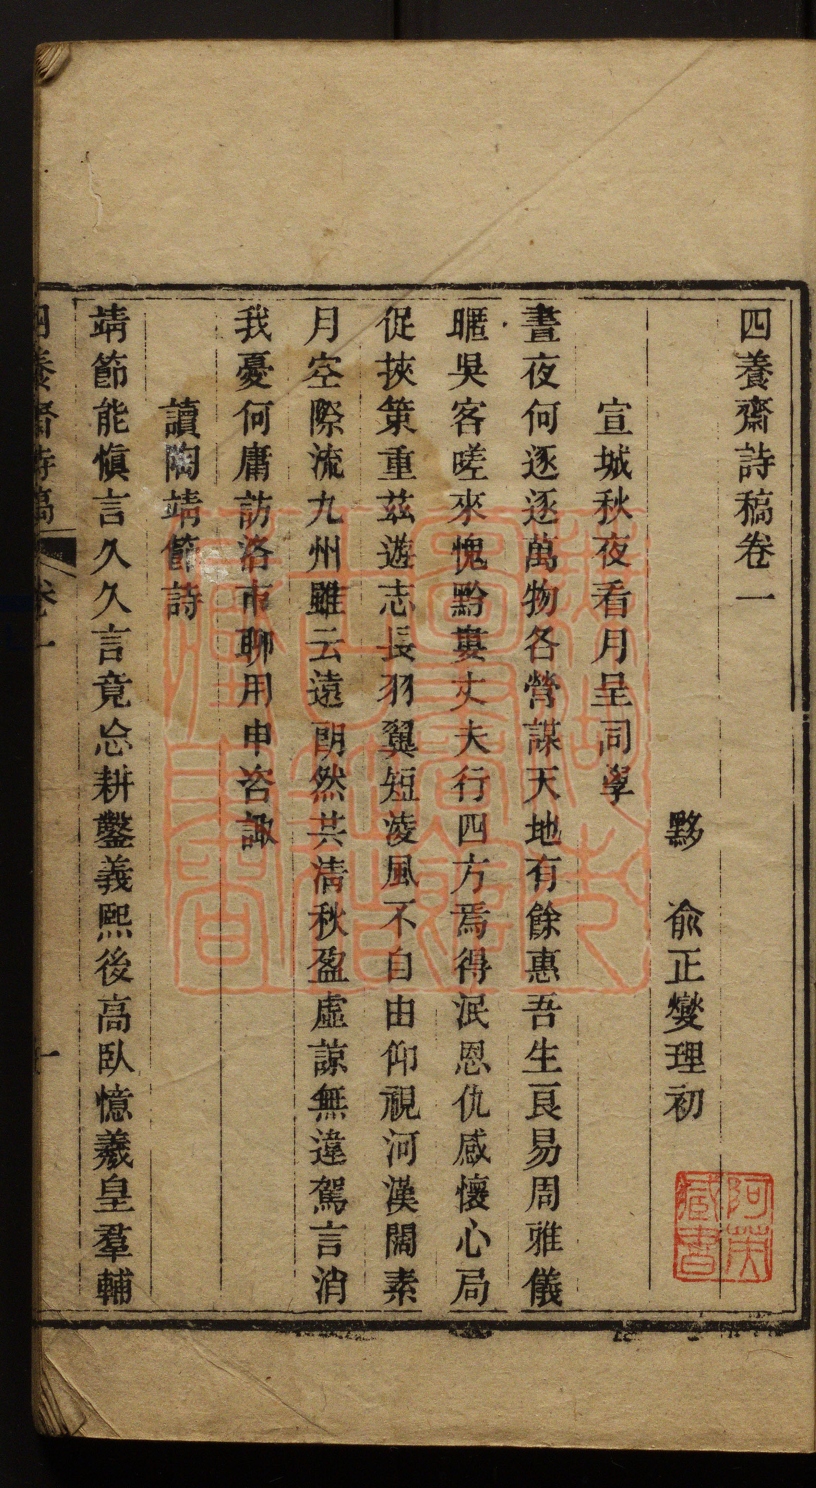 四養齋詩稿卷一
黟　俞正燮理初
宣城秋夜看月呈同學
晝夜何逐逐萬物各營謀天地有餘惠吾生良易周雅儀
暱吳客嗟來愧黔婁丈夫行四方焉得泯恩仇感懷心局
促挾策重茲遊志長羽翼短淩風不自由仰視河漢闊素
月空際流九州雖云遠朗然共清秋盈虛諒無違駕言消
我憂何庸訪洛市聊用申咨諏
讀陶靖節詩
靖節能愼言久久言竟忘耕鑿義熙後高臥憶羲皇羣輔
四養齋詩稿　卷一　一
阿英藏書